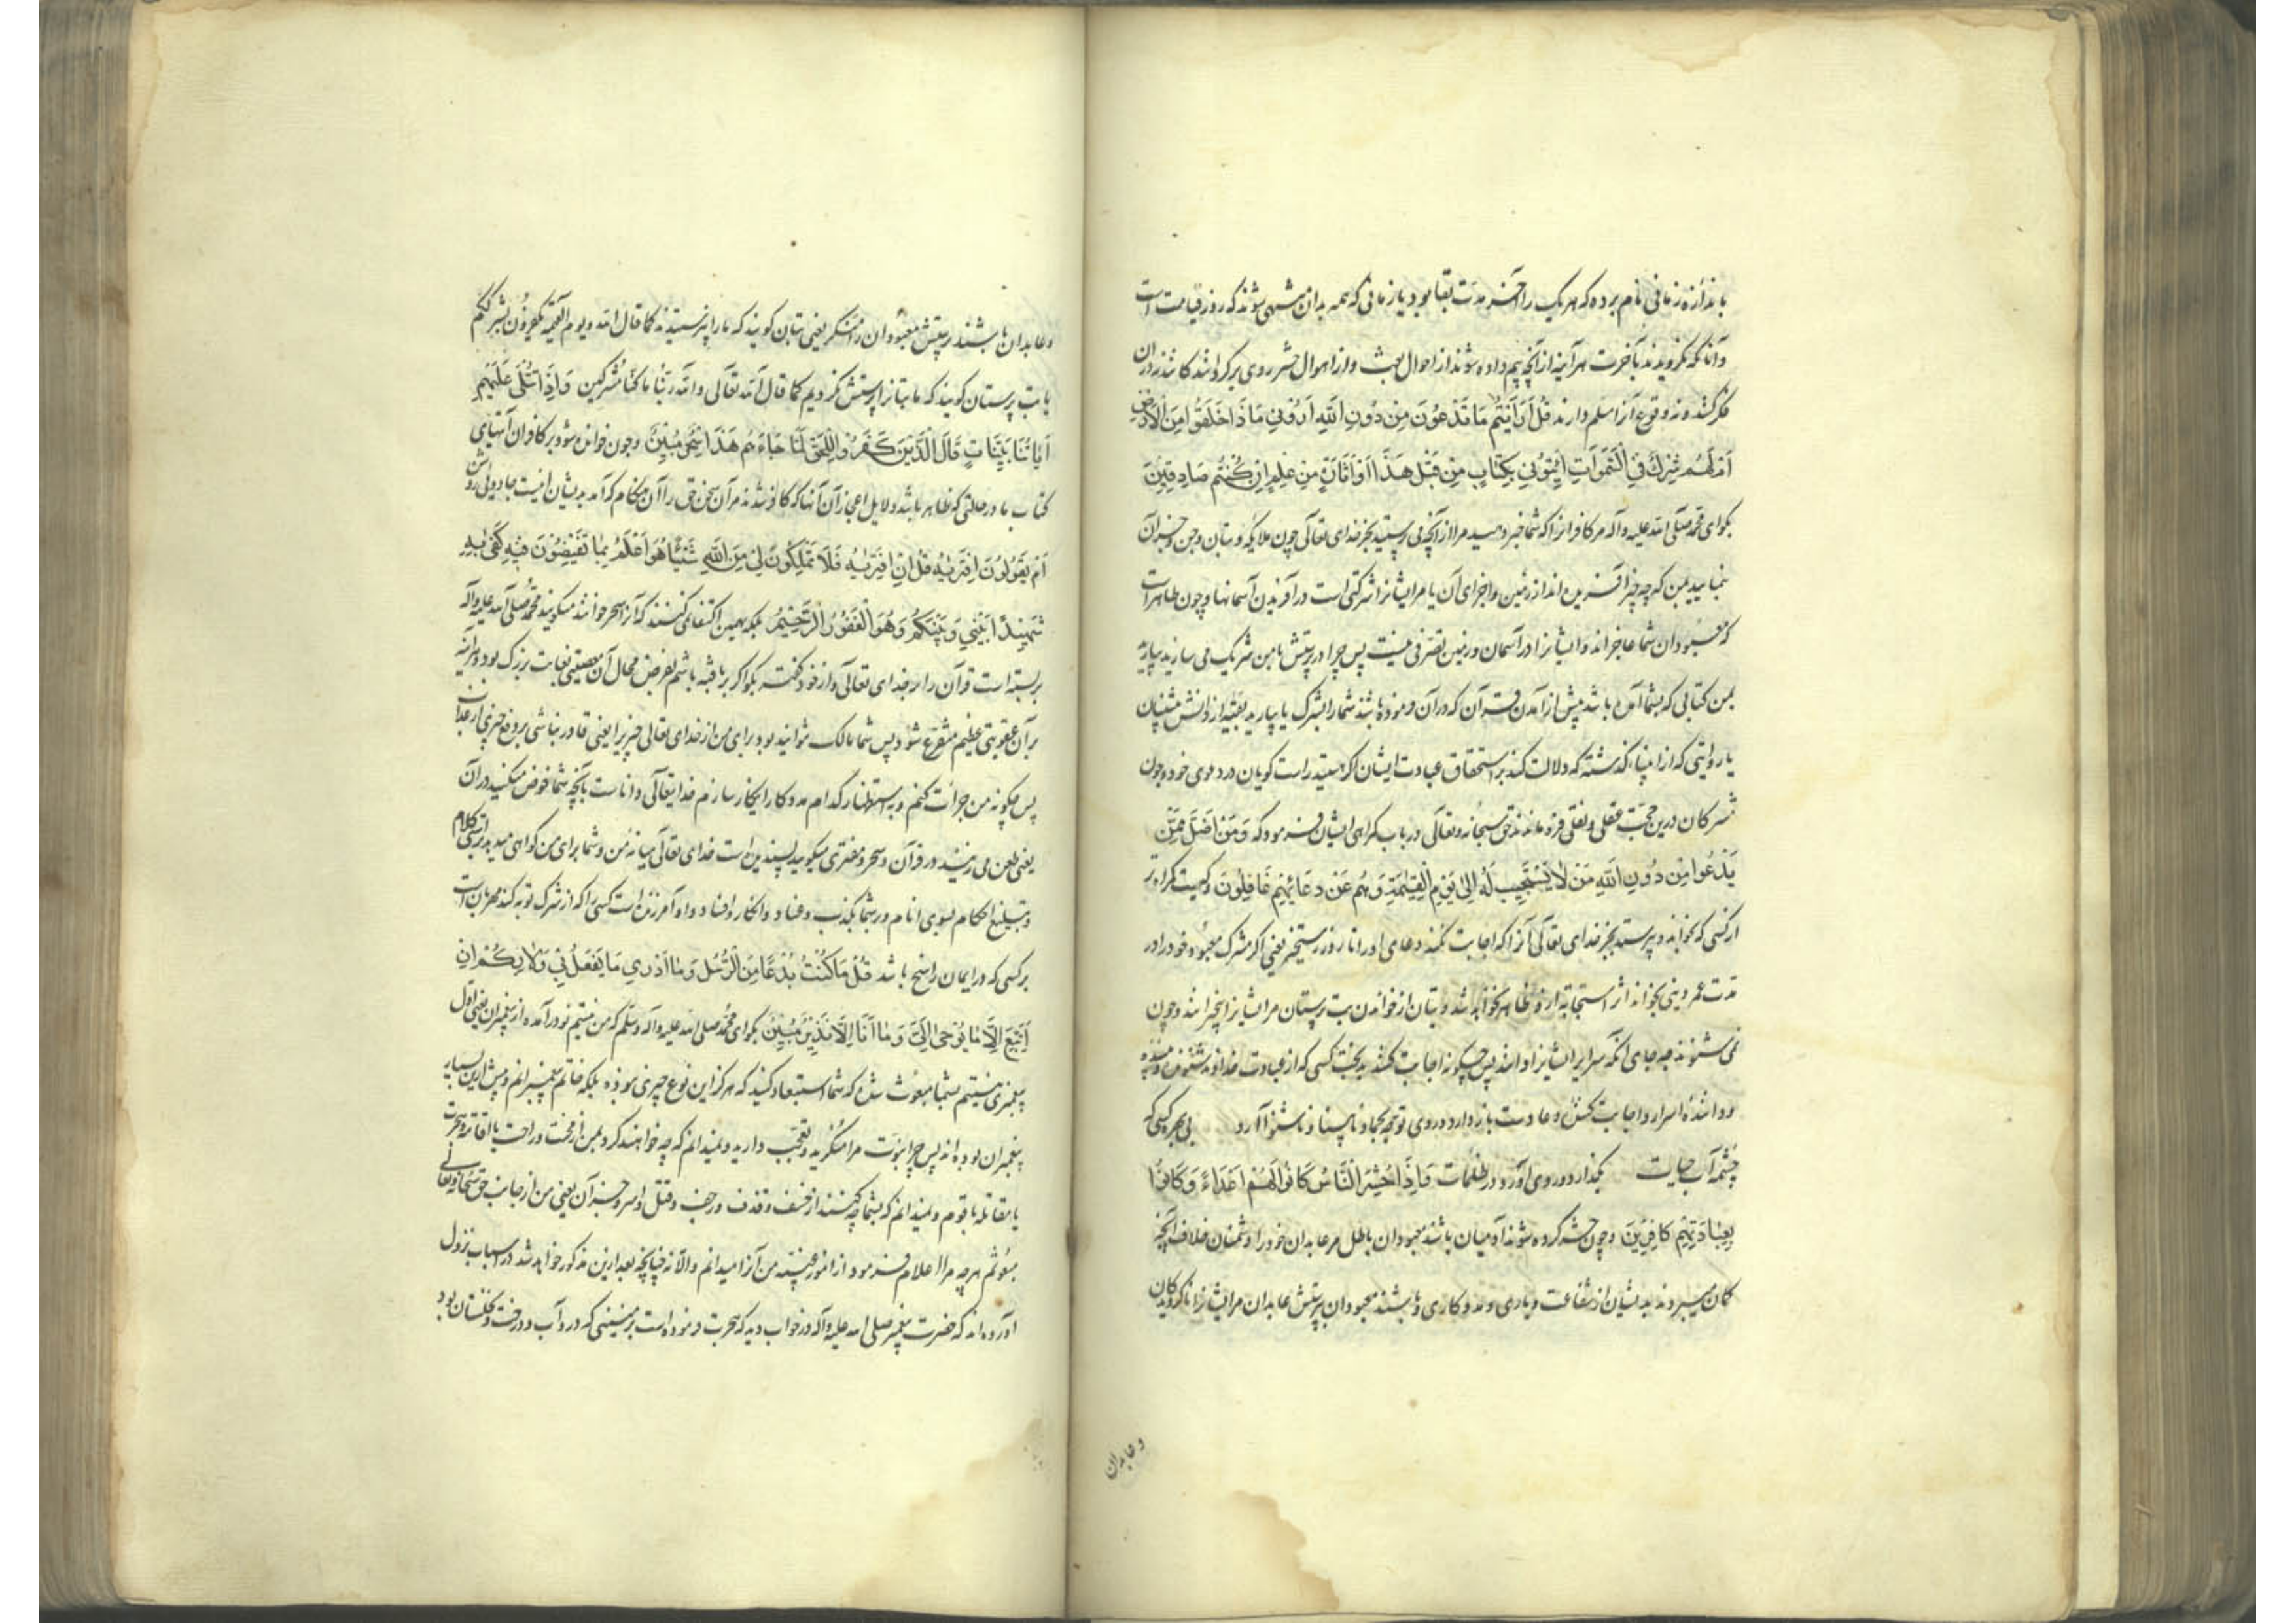 باندازه زمانی نام برده که هر یک را آخر مدت بقا بود یا زمانی که همه بدان منتهی شوند که روز قیامت است
و آنانکه نکرویدند بآخرت هر آینه از آنچه بیم داده شوند از احوال بعث و از اهوال حشر روی برکردانند کانند در آن
فکر کنند و نه وقوع آنرا مسلم دارند قُلْ أَرَأَيْتُمْ مَا تَدْعُونَ مِنْ دُونِ اللَّهِ أَرُونِي مَا ذَا خَلَقُوا مِنَ الْأَرْضِ
أَمْ لَهُمْ شِرْكٌ فِي السَّمَوَاتِ ائْتُونِي بِكِتَابٍ مِنْ قَبْلِ هَذَا أَوْ أَثَارَةٍ مِنْ عِلْمٍ إِنْ كُنْتُمْ صَادِقِينَ
بکو ای محمد صلی الله علیه و آله مر کافرانرا که شما خبر دهید مرا از آنچه می پرستید بجز خدای تعالی چون ملایکه و بتان و جن و جز آن
بنمایید بمن که چه چیز آفریده اند از زمین و اجزای آن یا مر ایشانرا شرکتی است در آفریدن آسمانها و چون ظاهر است
که معبودان شما عاجزاند و ایشانرا در آسمان و زمین تصرفی نیست پس چرا در پرستش با من شریک می سازید بیارید
بمن کتابی که بشما آمده باشد پیش از آمدن قرآن که در آن فرموده باشند شما را بشرک یا بیارید بقیه از دانش پیشینیان
یا روایتی که از انبیاء گذشته که دلالت کند بر استحقاق عبادت ایشان اکر هستید راست کویان در دعوی خود و چون
مشرکان درین حجت عقلی و نقلی فرو ماندند حق سبحانه و تعالی در باب کمراهی ایشان فرمود که وَمَنْ أَضَلُّ مِمَّنْ
يَدْعُوا مِنْ دُونِ اللَّهِ مَنْ لَا يَسْتَجِيبُ لَهُ إِلَى يَوْمِ الْقِيَمَةِ وَهُمْ عَنْ دُعَائِهِمْ غَافِلُونَ و کیست کمراه تر
از کسی که بخواند و بپرستد بجز خدای تعالی آنرا که اجابت نکند دعای او را تا روز رستخیز یعنی اکر مشرک معبود خود را در
مدت عمر دنیی بخواند اثر استجابة ازو ظاهر نخواهد شد و بتان از خواندن بت پرستان مر ایشانرا بیخبرانند و چون
نمی شنوند چه جای آنکه سرایر ایشانرا دانند پس چگونه اجابت کنند بدبخت کسی که از عبادت خداوند شنونده بیننده
و داننده اسرار و اجابت کننده دعا دست باز دارد و روی توجه بجماد نابینا و ناشنوا آرد بی بهره کسی که
چشمه آب حیات بگذارد و روی آورد در ظلمات وَإِذَا حُشِرَ النَّاسُ كَانُوا لَهُمْ أَعْدَاءً وَكَانُوا
بِعِبَادَتِهِمْ كَافِرِينَ و چون حشر کرده شوند آدمیان باشند معبودان باطل مر عابدان خود را دشمنان خلاف آنچه
کمان میبردند بدیشان از شفاعت و یاری و مددکاری و باشند معبودان بپرستش عابدان مر ایشانرا ناکرویدکان
و عابدان
و عابدان باشند پرستش معبودانرا منکر یعنی بتان کویند که ما را نپرستیدند کما قال الله و یوم القیمة یکفرون بشرککم
یا بت پرستان کویند که ما بتانرا پرستش نکردیم کما قال الله تعالی والله ربنا ما کنا مشرکین وَإِذَا تُتْلَى عَلَيْهِمْ
آيَاتُنَا بَيِّنَاتٍ قَالَ الَّذِينَ كَفَرُوا لِلْحَقِّ لَمَّا جَاءَهُمْ هَذَا سِحْرٌ مُبِينٌ و چون خوانده شود بر کافران آیتهای
کتاب ما در حالتی که ظاهر باشد دلایل اعجاز آن آنها که کافر شدند مر آن سخن حق را آن هنکام که آمد بدیشان اینست جادویی روشن
أَمْ يَقُولُونَ افْتَرَيهُ قُلْ إِنِ افْتَرَيْتُهُ فَلَا تَمْلِكُونَ لِي مِنَ اللَّهِ شَيْئًا هُوَ أَعْلَمُ بِمَا تُفِيضُونَ فِيهِ كَفَى بِهِ
شَهِيدًا بَيْنِي وَبَيْنَكُمْ وَهُوَ الْغَفُورُ الرَّحِيمُ بلکه بهمین اکتفا نمی کنند که آنرا سحر خوانند میکویند محمد صلی الله علیه و آله
بر بسته است قرآن را بر خدای تعالی و از خود کفته بکو اکر بربافته باشم بفرض محال آن معصیتی بغایت بزرک بود و هر آینه
بر آن عقوبتی عظیم متفرع شود پس شما مالک نتوانید بود برای من از خدای تعالی چیزیرا یعنی قادر نباشی بر دفع چیزی از عذاب
پس چکونه من جرات کنم و به استظهار کدام مددکار اینکار سازم خدایتعالی داناست بآنچه شما خوض میکنید در آن
یعنی طعن می زنید در قرآن و سحر و مفتری میکویید پسندیده است خدای تعالی میانه من و شما برای من کواهی میدهد براستی کلام
و تبلیغ احکام بسوی انام و بر شما بکذب و عناد و انکار و افساد و او آمرزنده است کسی را که از شرک توبه کند مهربان است
بر کسی که در ایمان راسخ باشد قُلْ مَا كُنْتُ بِدْعًا مِنَ الرُّسُلِ وَمَا أَدْرِي مَا يُفْعَلُ بِي وَلَا بِكُمْ إِنْ
أَتَّبِعُ إِلَّا مَا يُوحَى إِلَيَّ وَمَا أَنَا إِلَّا نَذِيرٌ مُبِينٌ بکو ای محمد صلی الله علیه و آله وسلم که من نیستم نو در آمده از پیغمبران یعنی اول
پیغمبری نیستم بشما مبعوث شده که شما استبعاد کنید که هرکز این نوع چیزی نبوده بلکه خاتم پیغمبرانم و پیش ازین بسیار
پیغمبران بوده اند پس چرا نبوت مرا منکرید و تعجب دارید و نمیدانم که چه خواهند کرد بمن از محنت و راحت یا اقامه و هجرت
یا مقاتله با قوم و نمیدانم که بشما چه کنند از خسف و قذف و رجف و قتل و اسر و جز آن یعنی من از جانب حق سبحانه و تعالی
مبعوثم هر چه مرا اعلام فرمود از امور غیبیه من آنرا میدانم والا نه چنانچه بعد ازین مذکور خواهد شد در اسباب نزول
آورده اند که حضرت پیغمبر صلی الله علیه و آله در خواب دید که هجرت فرموده است بزمینی که در و آب و درخت و نخلستان بود